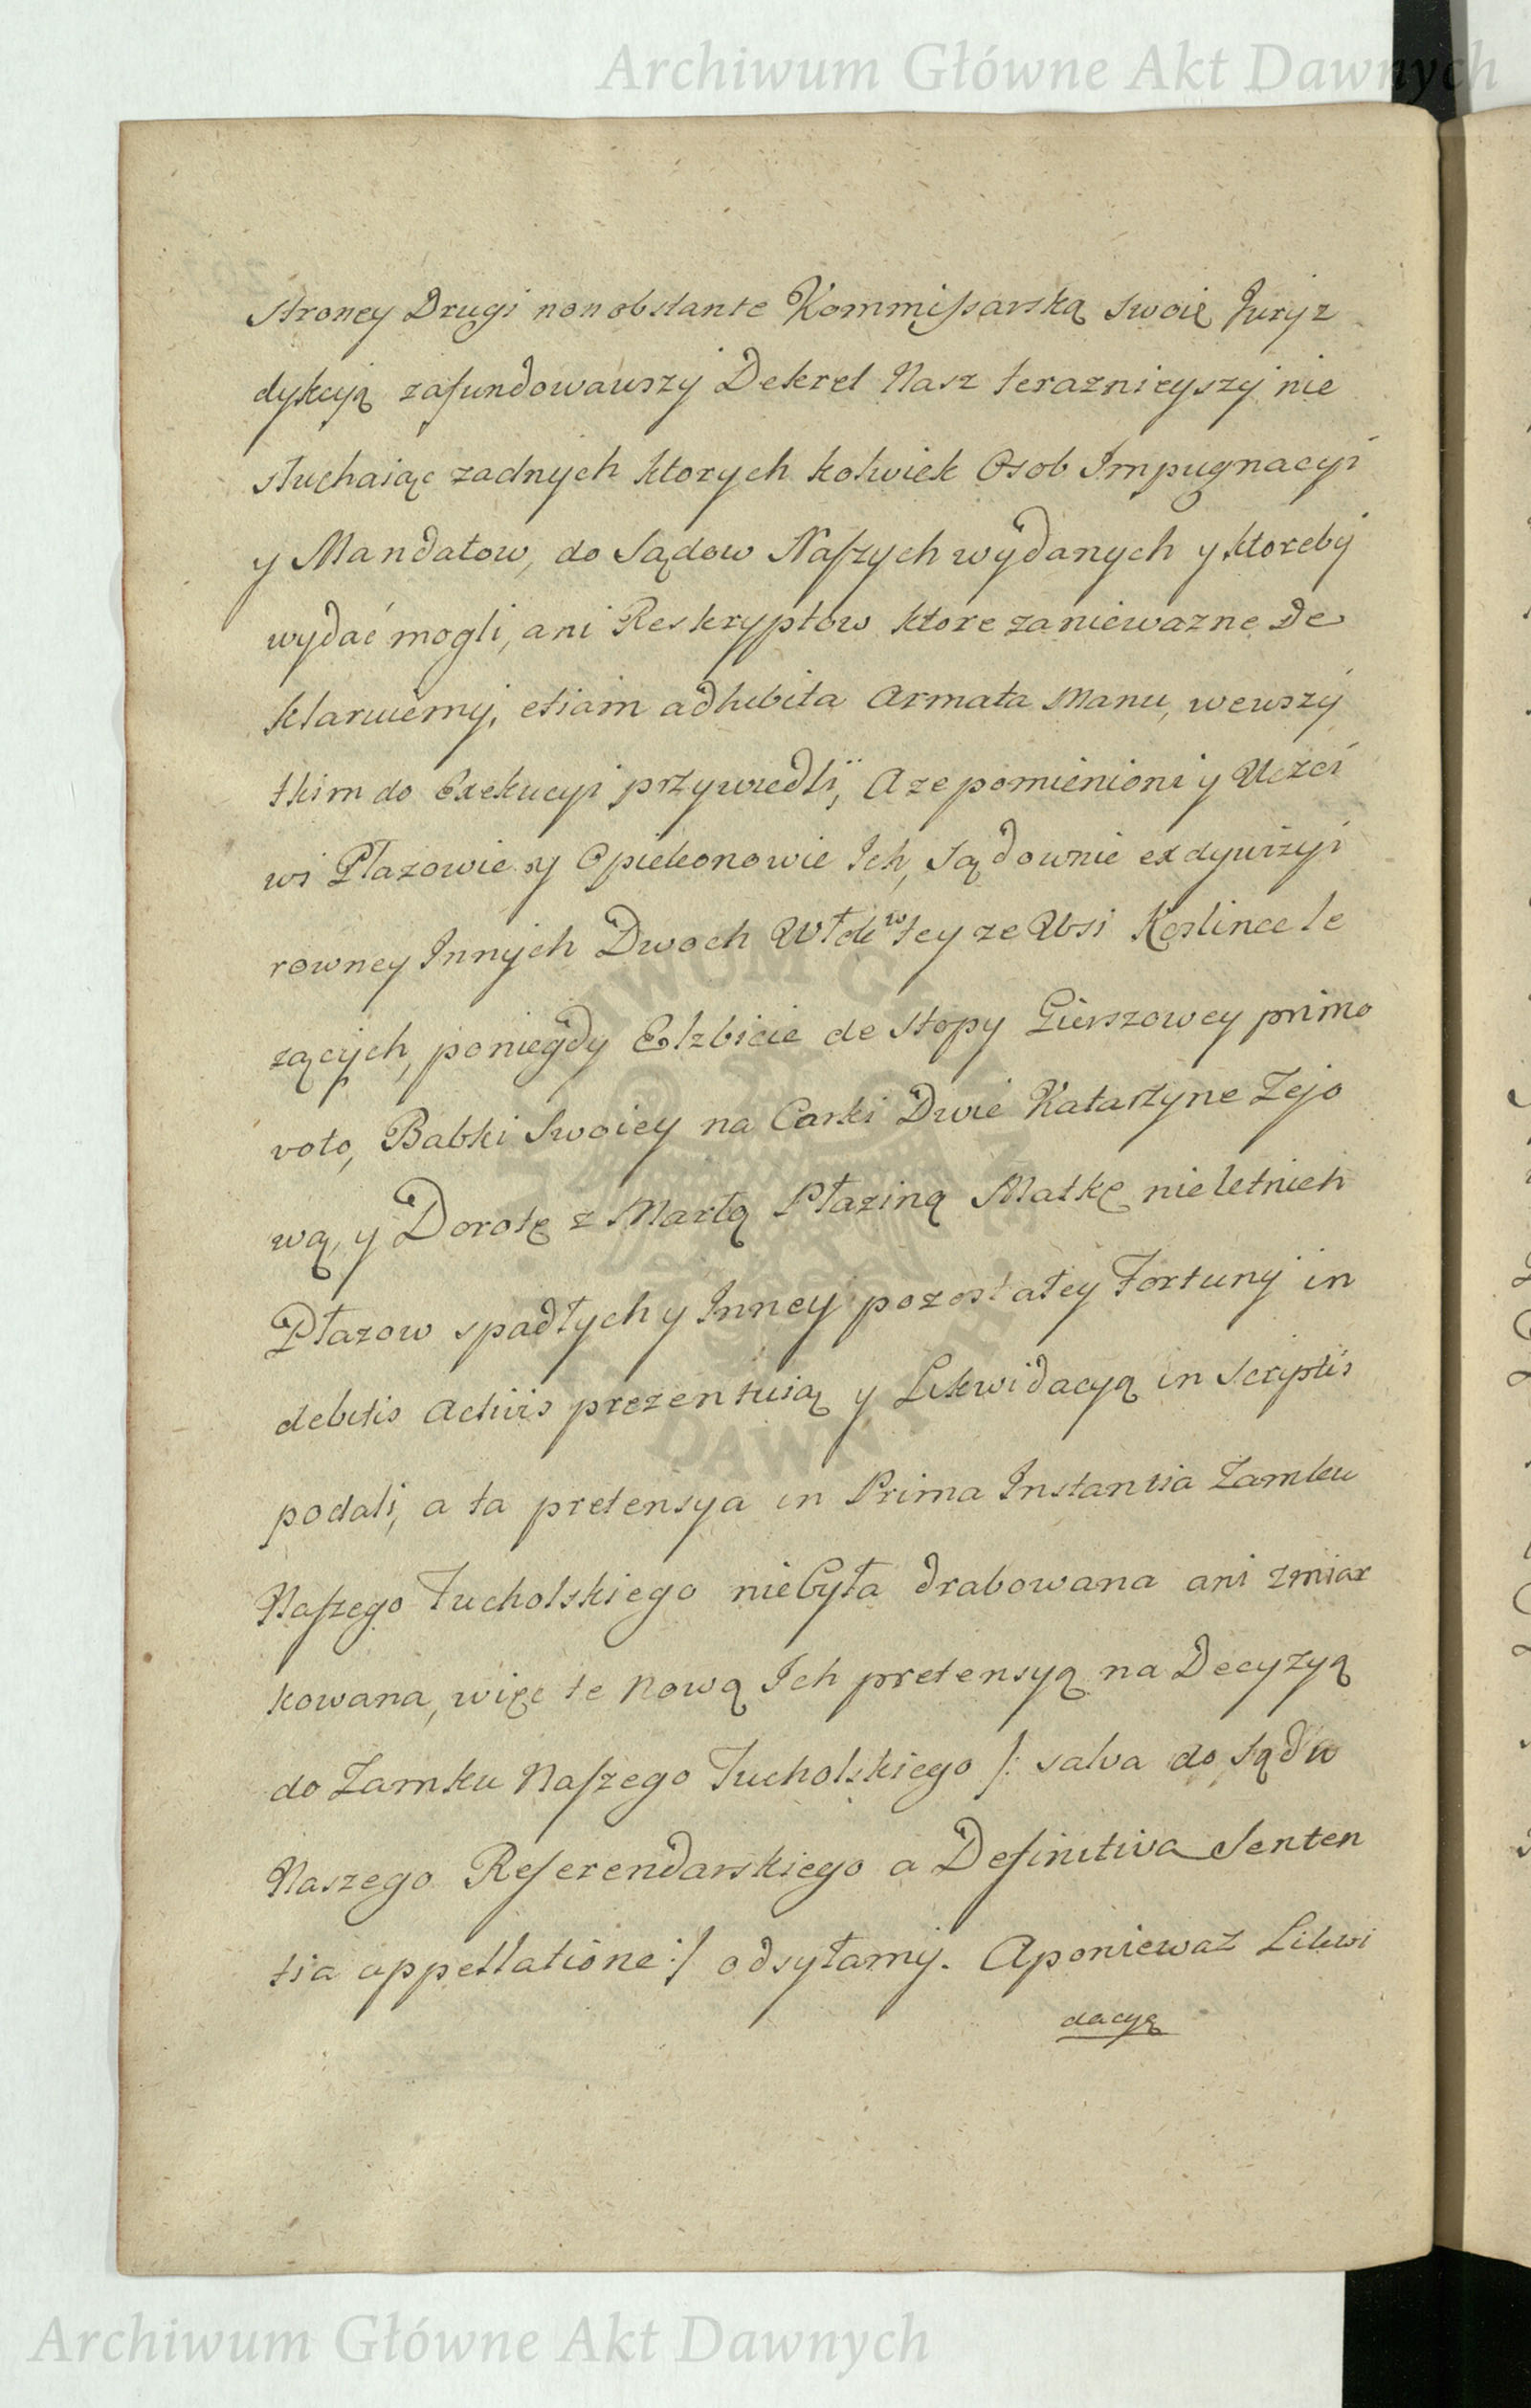 Archiwum Główne Akt Dawnych
Stroney Drugi non obstante Kommissarską swoię Juryz
dykcyją zafundowawszy Dekret Nasz teraznieyszy nie
słuchaiąc zadnych ktorych kolwiek Osob Impugnacyi
y Mandatow, do Sądow Naszych wydanych y ktoreby
wydać mogli, ani Reskryptow ktore za niewazne De
klaruiemy, etiam adhibita Armata Manu, we wszy
tkim do Exekucyi przywiedli, A ze pomienioni y Uczci
wi Płazowie y Opiekonowie Ich, Sądownie ex dywizyi
rowney Innych Dwoch Włok w tey ze Wsi Koslince le
zących, po niegdy Elzbicie de Stopy Gierszowey primo
voto, Babki Swoiey na Corki Dwie Katarzyne Zejo
wą, y Dorotę z Martą Płaziną Matkę nieletnich
Płazow spadłych y Inney pozostałey Fortuny in
debitis activis prezentuią y Likwidacyą in Scriptis
podali, a ta pretensya in Prima Instantia Zamku
Naszego Tucholskiego nie była drabowana ani zmiar
kowana, więc te Nową Ich pretensyą na Decyzyą
do Zamku Naszego Tucholskiego /: salva do Sądu
Naszego Referendarskiego a Definitiva Senten
tia appellatione :/ odsyłamy. A poniewaz Likwi
dacyą
Archiwum Główne Akt Dawnych